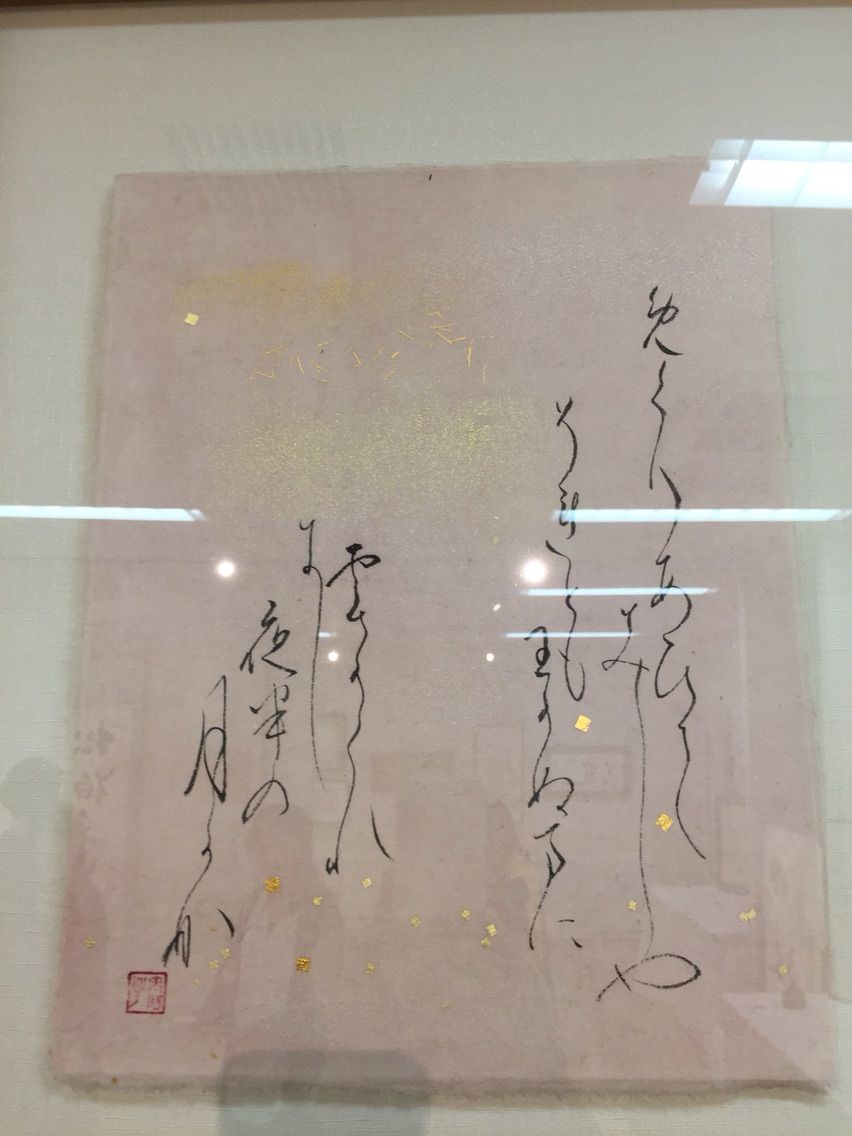 めくりあひて
みしや
それとも
わかぬまに
雲かくれ
にし
夜半の
月かな